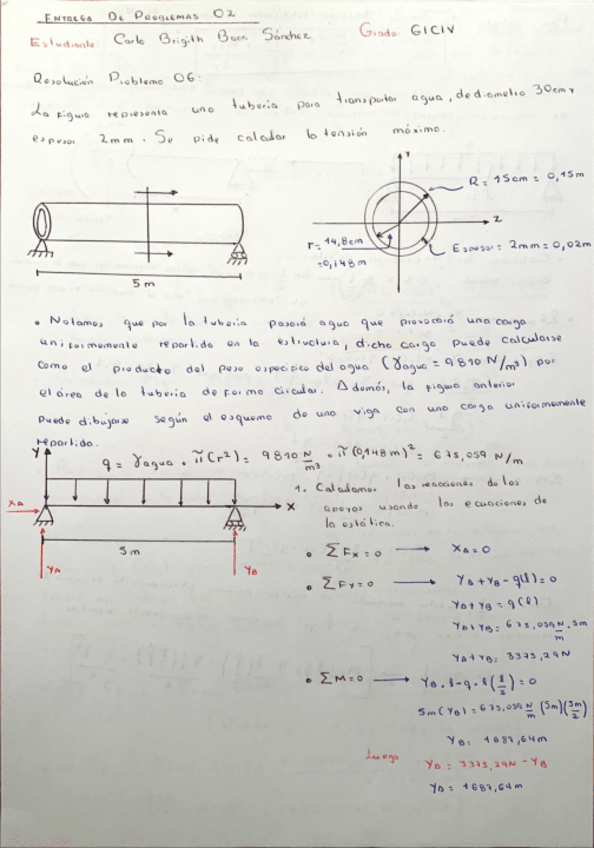 ENTREGA DE PROBLEMAS 02
Estudiante: Carlo Brigith Baca Sánchez Grado: GICIV
Resolución Problema 06:
La figura representa una tubería para transportar agua, de diametro 30cm y
espesor 2mm. Se pide calcular la tensión máxima.
Y
R = 15cm = 0,15m
Z
r = 14,8cm
= 0,148m
Espesor = 2mm = 0,02m
5 m
• Notamos que por la tubería pasará agua que provocará una carga
uniformemente repartida en la estructura, dicha carga puede calcularse
como el producto del peso específico del agua (γagua = 9810 N/m³) por
el área de la tubería de forma circular. Además, la figura anterior
puede dibujarse según el esquema de una viga con una carga uniformemente
repartida.
q = γagua · π(r²) = 9810 N/m³ · π(0,148m)² = 675,059 N/m
Y
X
XA
5m
YA
YB
1. Calculamos las reacciones de los
apoyos usando las ecuaciones de
la estática.
• ΣFx = 0 → XA = 0
• ΣFy = 0 → YA + YB - q(l) = 0
YA + YB = q(l)
YA + YB = 675,059 N/m · 5m
YA + YB = 3375,29N
• ΣM = 0 → YB · l - q · l(l/2) = 0
5m(YB) = 675,059 N/m (5m)(5m/2)
YB = 1687,64m
Luego YA = 3375,29N - YB
YA = 1687,64m